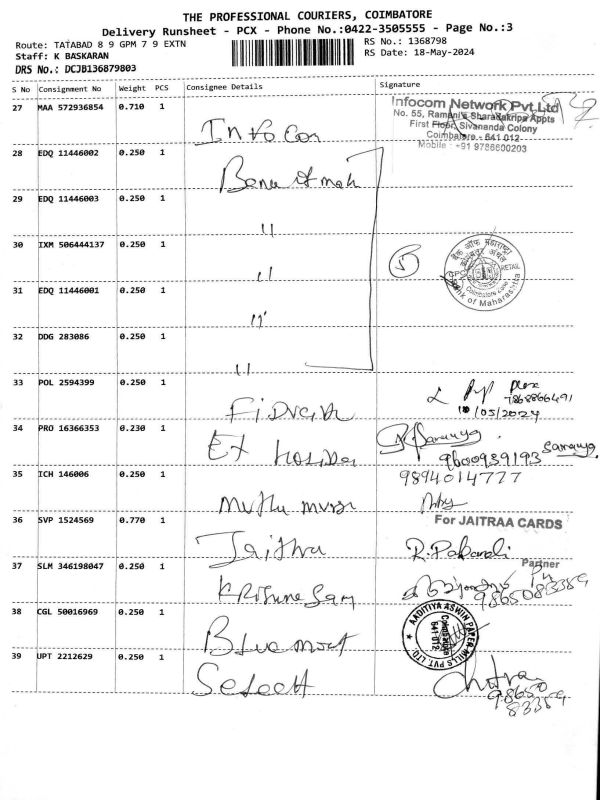 THE PROFESSIONAL COURIERS, COIMBATORE
Delivery Runsheet - PCX - Phone No.:0422-3505555 - Page No.:3
Route: TATABAD 8 9 GPM 7 9 EXTN
RS No.: 1368798
Staff: K BASKARAN
RS Date: 18-May-2024
DRS No.: DCJB136879803
S No Consignment No Weight PCS Consignee Details Signature
27 MAA 572936854 0.710 1
Infocom Network Pvt.Ltd
No. 55, Ramani's Sharadkripa Appts
First Floor, Sivananda Colony
Coimbatore - 641 012
Mobile : +91 9786600203
28 EDQ 11446002 0.250 1
29 EDQ 11446003 0.250 1
"
30 IXM 506444137 0.250 1
"
5
बैंक ऑफ महाराष्ट्र
RETAIL
Coimbatore Zone
Bank of Maharashtra
31 EDQ 11446001 0.250 1
"
32 DDG 283086 0.250 1
"
33 POL 2594399 0.250 1
7868866491
18/05/2024
34 PRO 16366353 0.230 1
Saranya
9600939193 Saranya
35 ICH 146006 0.250 1
9894014777
Muthu
36 SVP 1524569 0.770 1
For JAITRAA CARDS
Jaithra
37 SLM 346198047 0.250 1
Partner
9865083359
38 CGL 50016969 0.250 1
AADITIYA ASWIN PAPER MILLS PVT. LTD.
Coimbatore
641 012
39 UPT 2212629 0.250 1
Select
Chitra
98650
83359